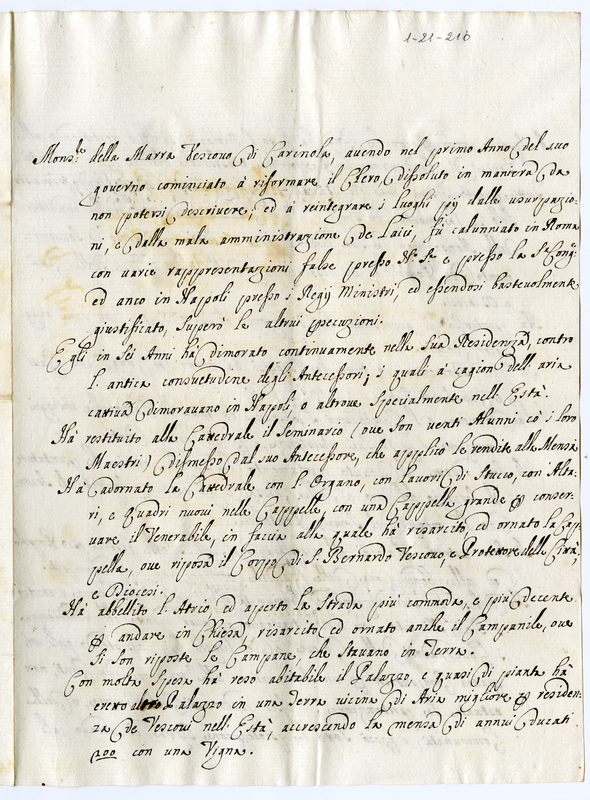 1-21-216
Mons.re della Marra Vescovo di Carinola, avendo nel primo Anno del suo
governo cominciato à riformare il Clero, dissoluto in maniera da
non potersi descrivere, ed à reintegrare i luoghi pij dalle usurpazio-
ni, e dalla mala amministrazione de Laici, fù calunniato in Roma
con varie rappresentazioni false presso N.S.re e presso la S.Cong.e
ed anco in Napoli presso i Regij Ministri, ed essendosi bastevolmente
giustificato, superò le altrui
Egli in sei Anni hà dimorato continuamente nella sua Residenza, contro
l'antica consuetudine degli Antecessori, i quali à cagion dell'aria
cattiva dimoravano in Napoli, o altrove specialmente nell'Està.
Hà restituito alla Cattedrale il Seminario (ove son venti Alunni cò i loro
Maestri) dismesso dal suo Antecessore, che applicò le rendite alla Mensa
Hà adornato la Cattedrale con l'Organo, con lavori di Stucco, con Alta-
ri, e Quadri nuovi nelle Cappelle, con una Cappella grande p conser-
vare il Venerabile, in faccia alla quale hà risarcito ed ornato la Cap-
pella, ove riposa il Corpo di S. Bernardo Vescovo, e Protettore della Città,
e Diocesi.
Hà abbellito l'Atrio, ed aperto la Strada più commoda, e più decente
p andare in Chiesa, risarcito ed ornato anche il Campanile, ove
si son riposte le Campane, che stavano in Terra.
Con molta spesa hà reso abitabile il Palazzo, e quasi di pianta hà
eretto altro Palazzo in una Terra vicina di Aria migliore p residen-
za de Vescovi nell'Està, accrescendo la mensa di annui ducati
100 con una Vigna.